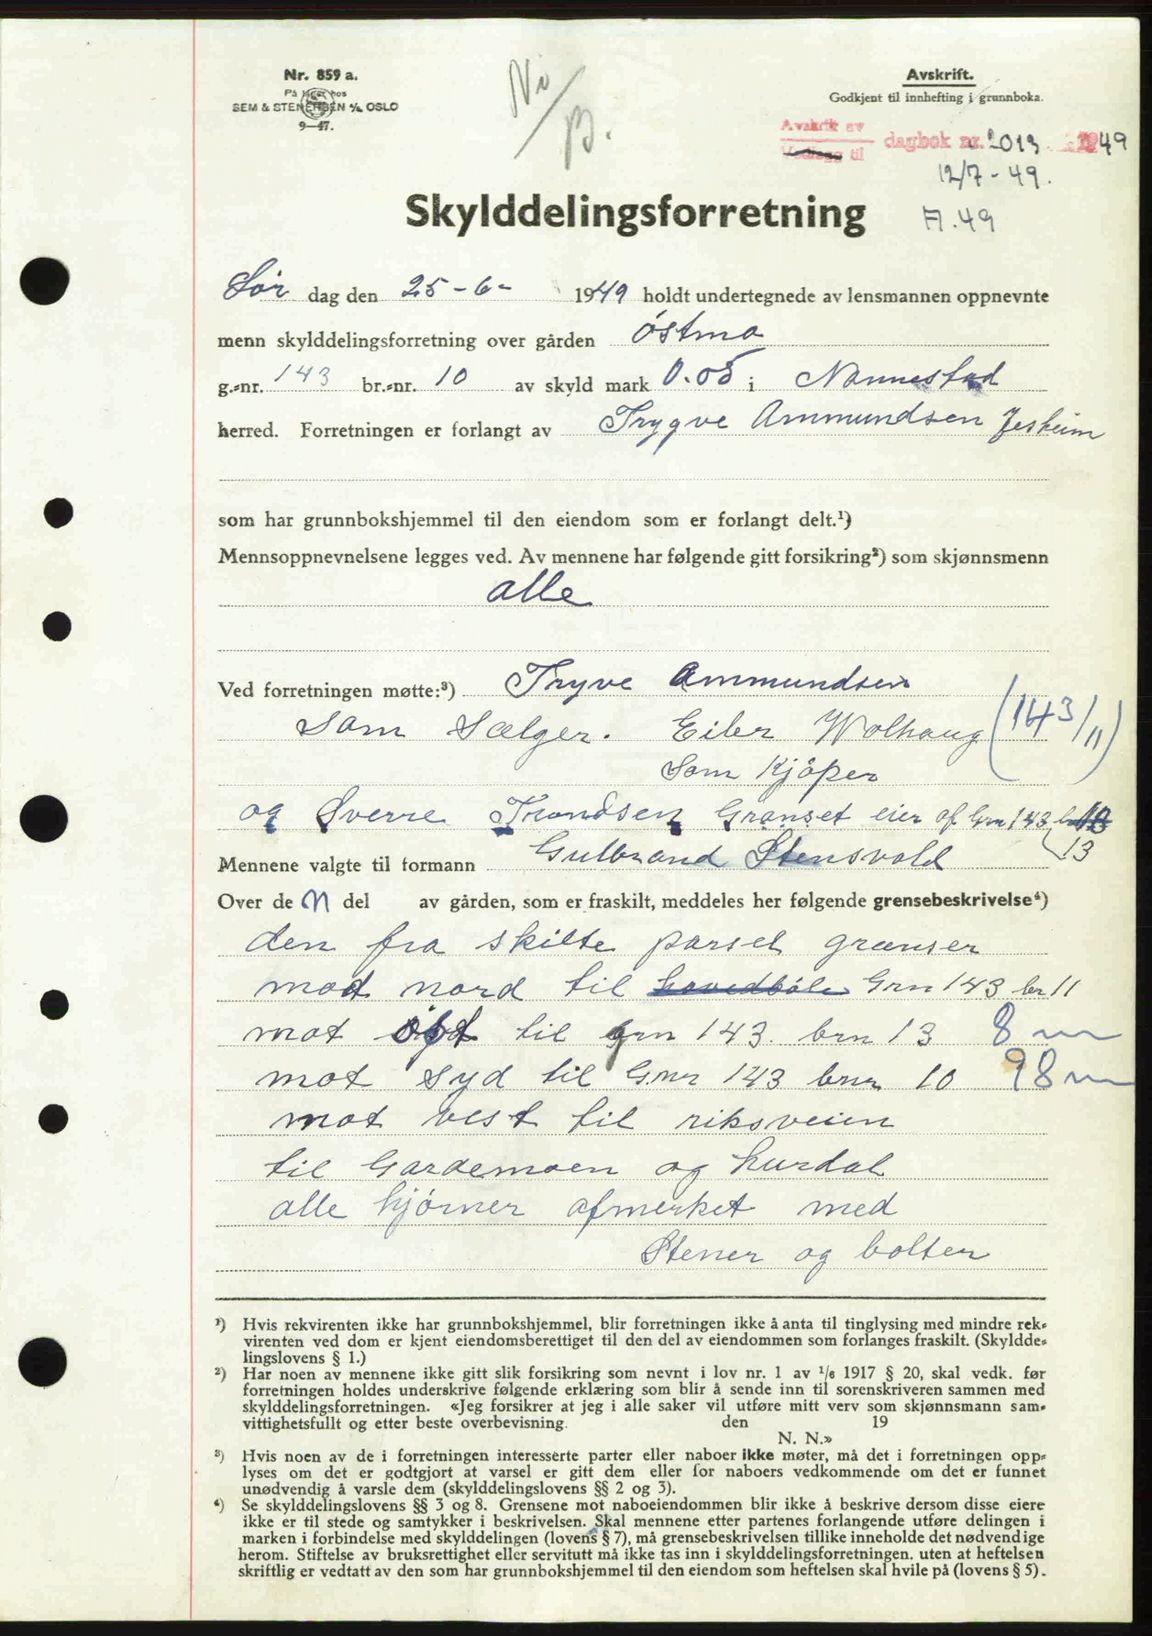 Nr. 859 a.
På lager hos
SEM & STENERSEN A/S OSLO
9—47.
Ni/B.
Avskrift.
Godkjent til innhefting i grunnboka.
Avskrift av
Vedlegg til dagbok nr. 2013 1949
12/7-49.
A.49
Skylddelingsforretning
Lør dag den 25-6- 1949 holdt undertegnede av lensmannen oppnevnte
menn skylddelingsforretning over gården Østmo
g.-nr. 143 br.-nr. 10 av skyld mark 0.05 i Nannestad
herred. Forretningen er forlangt av Trygve Ammundsen Jesheim
som har grunnbokshjemmel til den eiendom som er forlangt delt.¹)
Mennsoppnevnelsene legges ved. Av mennene har følgende gitt forsikring²) som skjønnsmenn
alle
Ved forretningen møtte:³) Tryve Ammundsen
som Sælger. Eiler Wolhaug (143/11)
Som Kjøper
og Sverre Trondsen Granset eier af Grn 143 br 10
13
Mennene valgte til formann Gulbrand Stensvold
Over de n del av gården, som er fraskilt, meddeles her følgende grensebeskrivelse⁴)
den fra skilte parsel grænser
mod nord til hovedbøle Grn 143 br 11
mot øst til grn 143 brn 13 8 m
mot syd til Gnr 143 brn 10 98 m
mot vest til riksveien
til Gardemoen og hurdal
alle hjørner afmerket med
Stener og bolter
¹) Hvis rekvirenten ikke har grunnbokshjemmel, blir forretningen ikke å anta til tinglysing med mindre rek-
virenten ved dom er kjent eiendomsberettiget til den del av eiendommen som forlanges fraskilt. (Skyldde-
lingslovens § 1.)
²) Har noen av mennene ikke gitt slik forsikring som nevnt i lov nr. 1 av 1/6 1917 § 20, skal vedk. før
forretningen holdes underskrive følgende erklæring som blir å sende inn til sorenskriveren sammen med
skylddelingsforretningen. «Jeg forsikrer at jeg i alle saker vil utføre mitt verv som skjønnsmann sam-
vittighetsfullt og etter beste overbevisning. den 19
N. N.»
³) Hvis noen av de i forretningen interesserte parter eller naboer ikke møter, må det i forretningen opp-
lyses om det er godtgjort at varsel er gitt dem eller for naboers vedkommende om det er funnet
unødvendig å varsle dem (skylddelingslovens §§ 2 og 3).
⁴) Se skylddelingslovens §§ 3 og 8. Grensene mot naboeiendommen blir ikke å beskrive dersom disse eiere
ikke er til stede og samtykker i beskrivelsen. Skal mennene etter partenes forlangende utføre delingen i
marken i forbindelse med skylddelingen (lovens § 7), må grensebeskrivelsen tillike inneholde det nødvendige
herom. Stiftelse av bruksrettighet eller servitutt må ikke tas inn i skylddelingsforretningen, uten at heftelsen
skriftlig er vedtatt av den som har grunnbokshjemmel til den eiendom som heftelsen skal hvile på (lovens § 5).